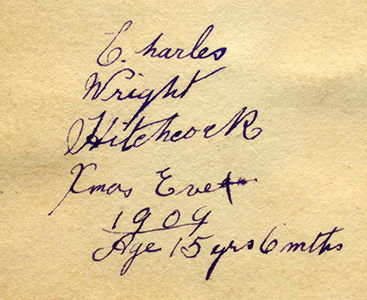 C. harles
Wright
Hitchcock
Xmas Eve
1909
Age 15 yrs 6 mths